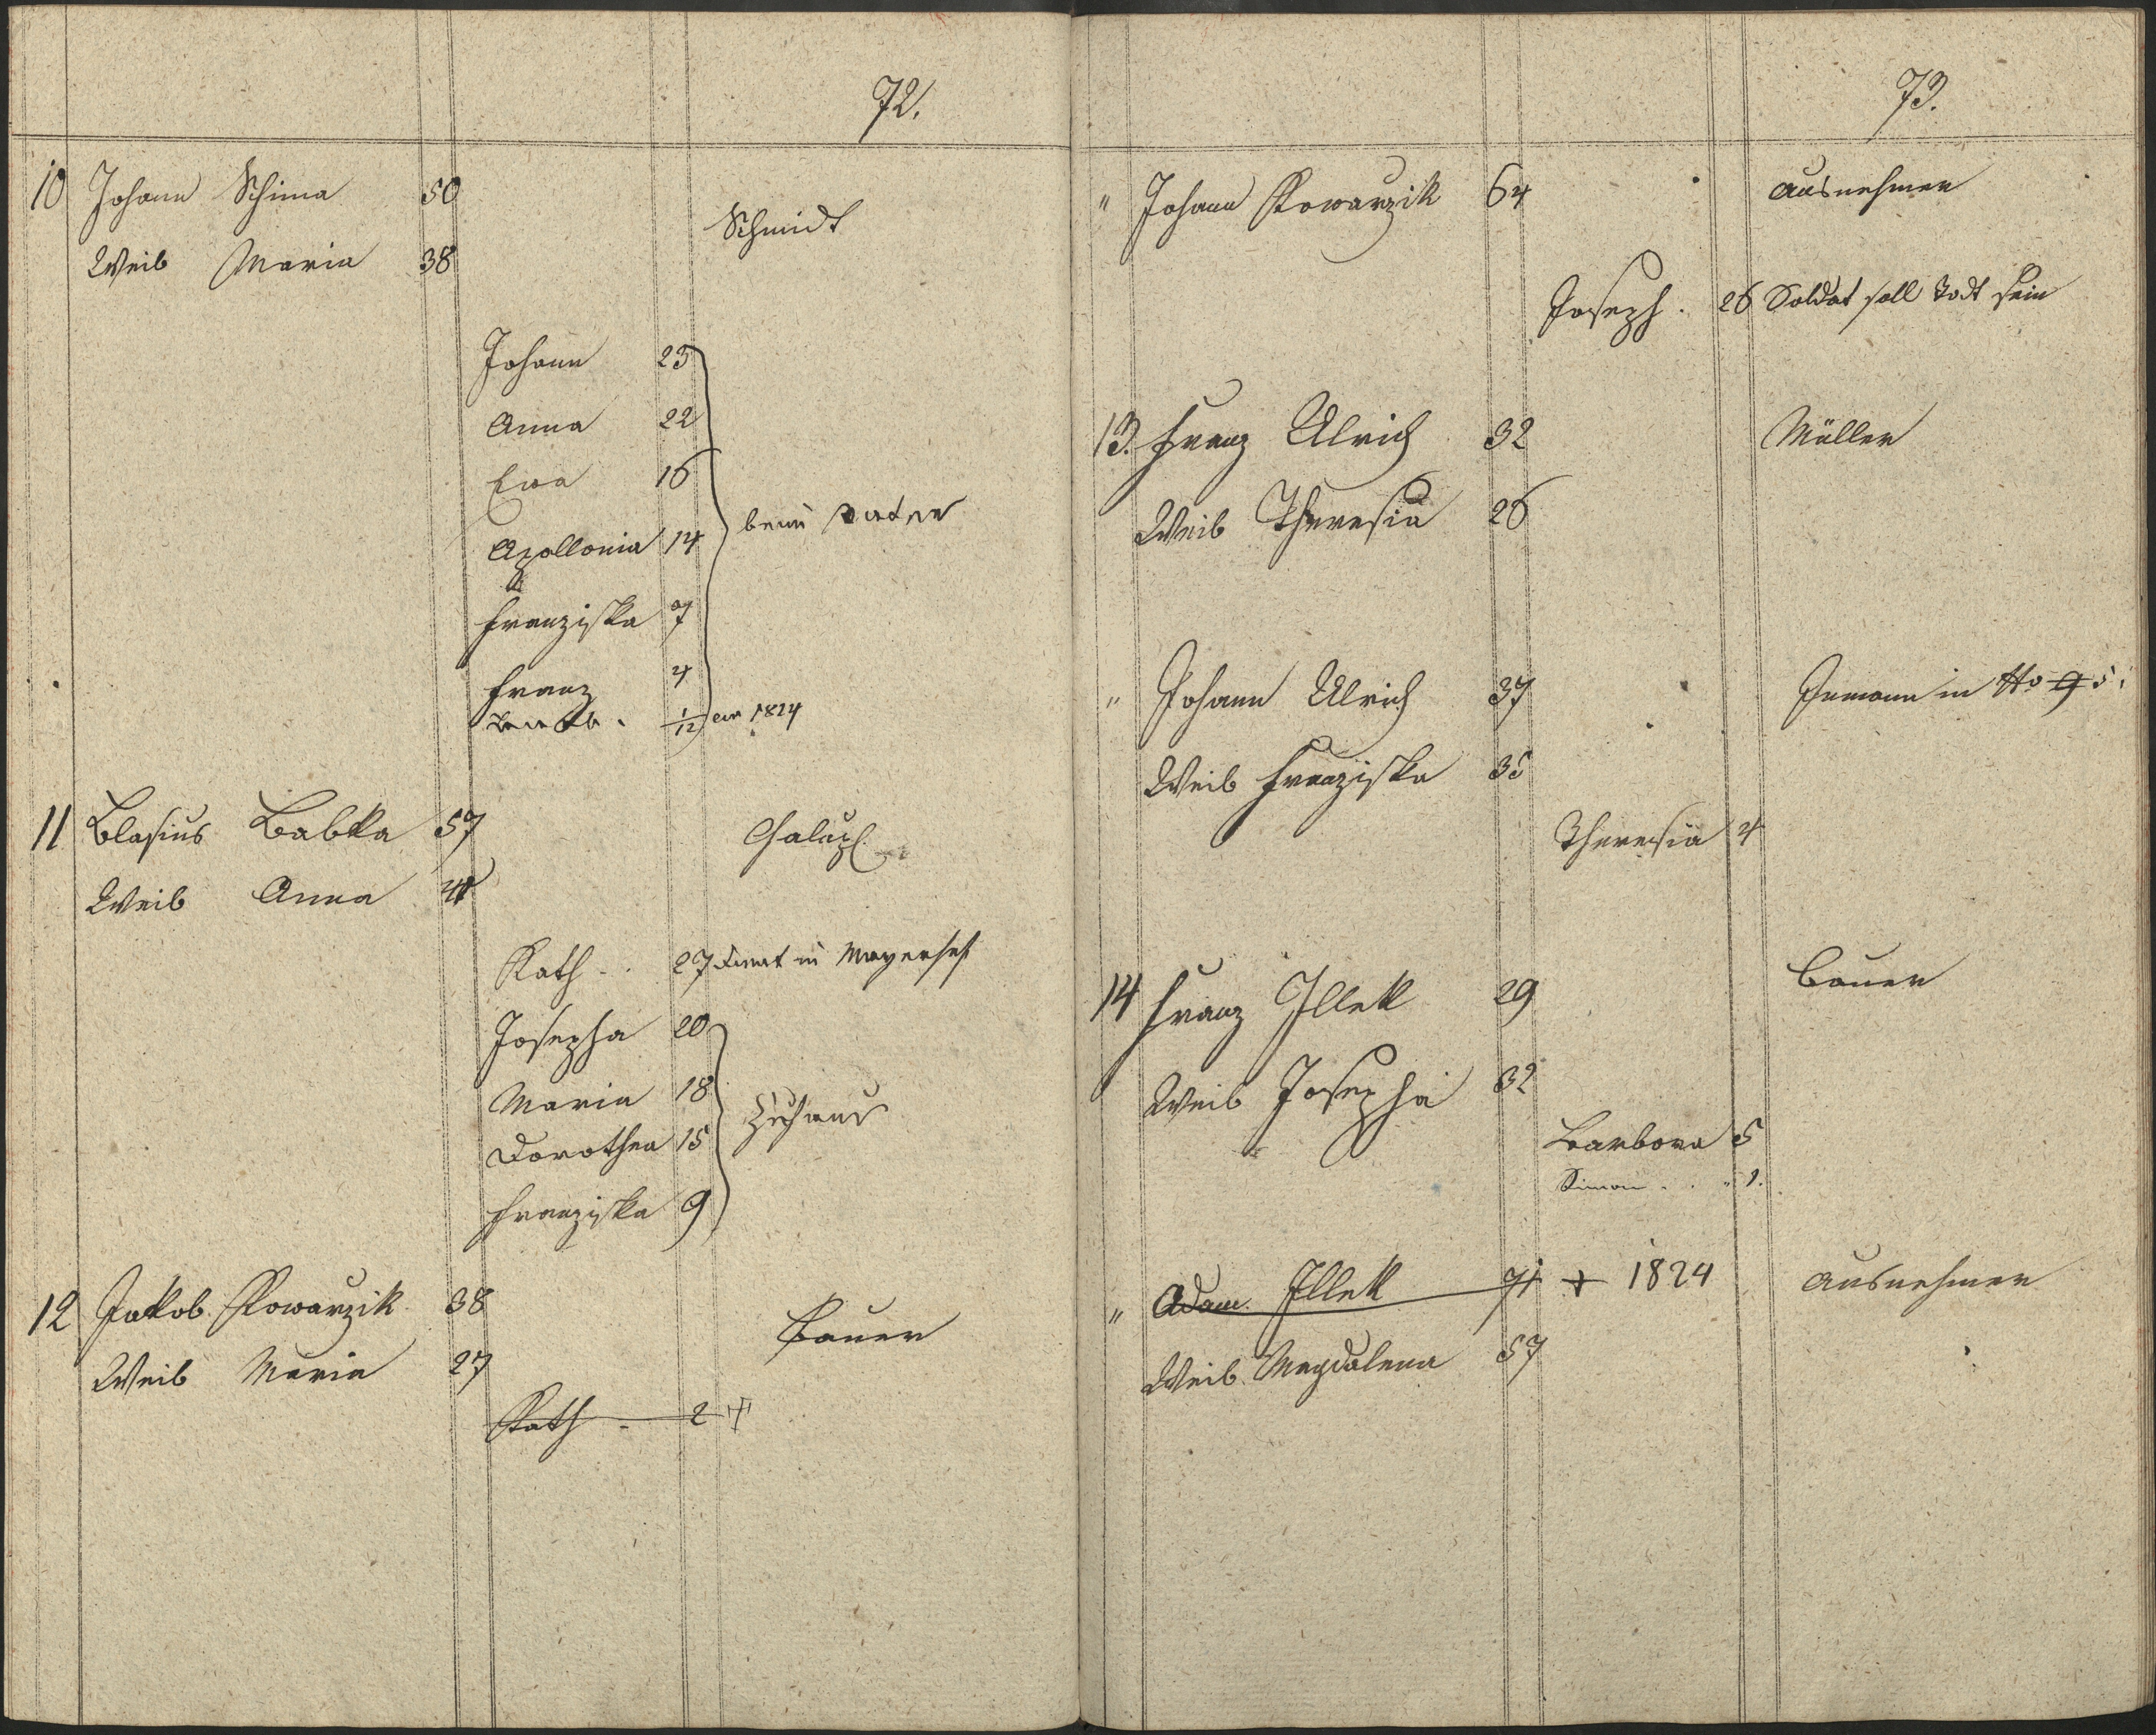 72.
10 Johann Schima 50
Schmidt
Weib Maria 38
Johann 23
Anna 22
Eva 16
beim Vater
Apollonia 14
Franziska 7
Franz 4
1/12 1824
11 Blasius Babka 57
Chalup
Weib Anna
Kath. . 27 dient in Mayerhof
Josepha 20
Maria 18
Zuhaus
Dorothea 15
Franziska 9
12 Jakob Kowarzik 38
Bauer
Weib Maria 27
Kath - 2 +
73.
" Johann Kowarzik 64 Ausnehmer
Joseph . 26 Soldat soll Todt sein
13. Franz Ulrich 32 Müller
Weib Theresia 26
" Johann Ulrich 37 Inmann in No 9 5.
Weib Franziska 35
Theresia 4
14 Franz Illek 29 Bauer
Weib Josepha 32
Barbora 5
Simon . . " 1.
" Adam Illek 71 + 1824 Ausnehmer
Weib Magdalena 57